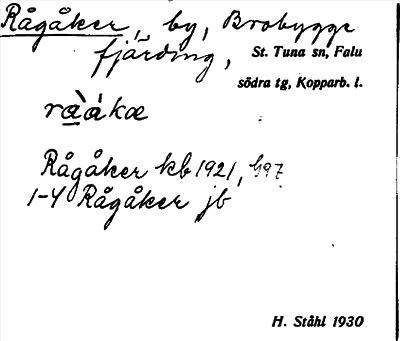 Rågåker, by, Brobygge
fjärding,
St. Tuna sn, Falu
södra tg, Kopparb. l.
Rågåker kb 1921,
1-4 Rågåker jb
H. Ståhl 1930